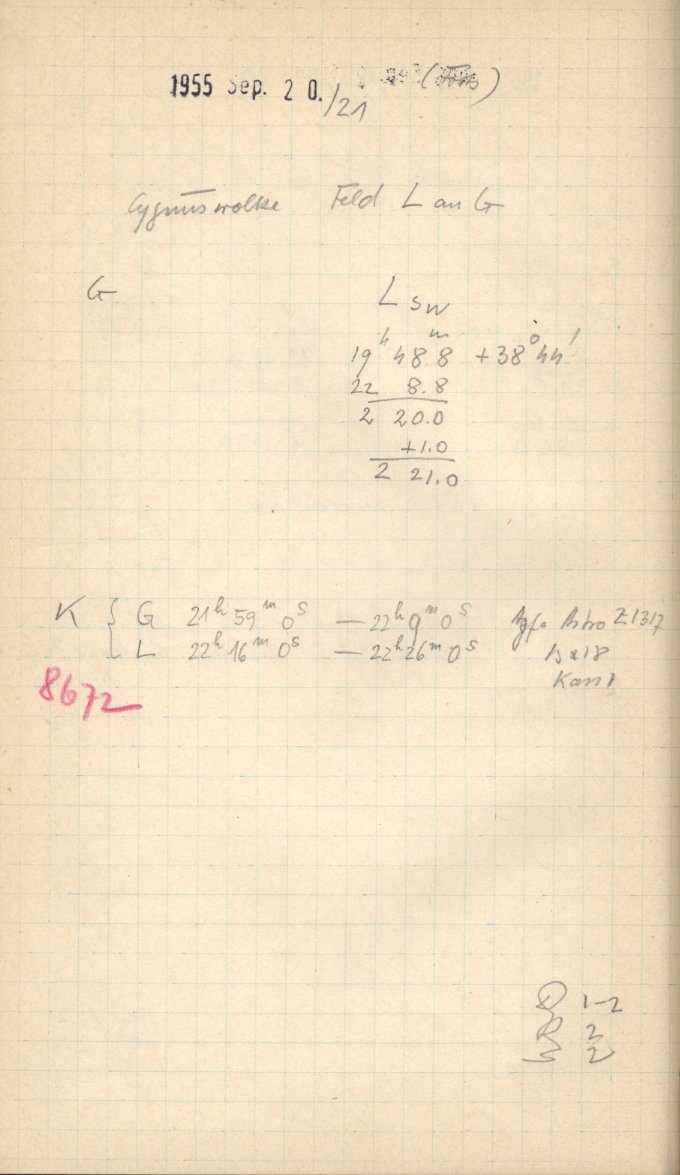 1955 Sep. 20./21
Cygnuswolke Feld L an G
G
L SW
19h 48.8m +38° 44'
22 8.8
2 20.0
+1.0
2 21.0
K { G 21h 59m 0s — 22h 9m 0s Agfa Astro Z1317
L 22h 16m 0s — 22h 26m 0s
Kass 1
8672
1-2
R 2
S 2